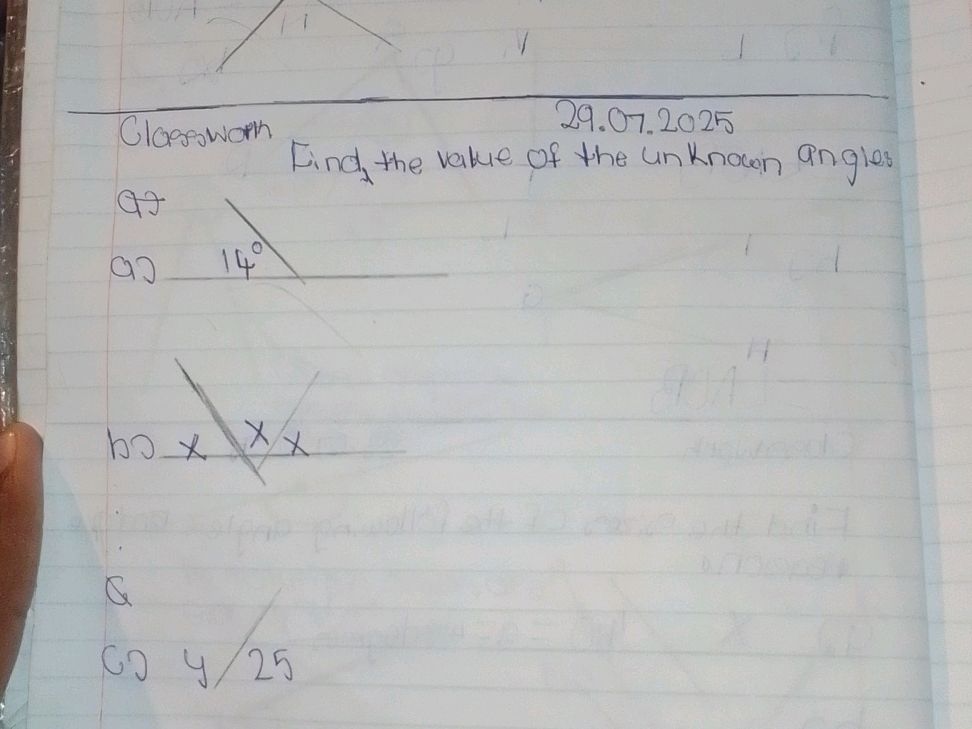 Classwork 29.07.2025
Find the value of the unknown angles
a)
a) 14°
b) x x x
c) y 25